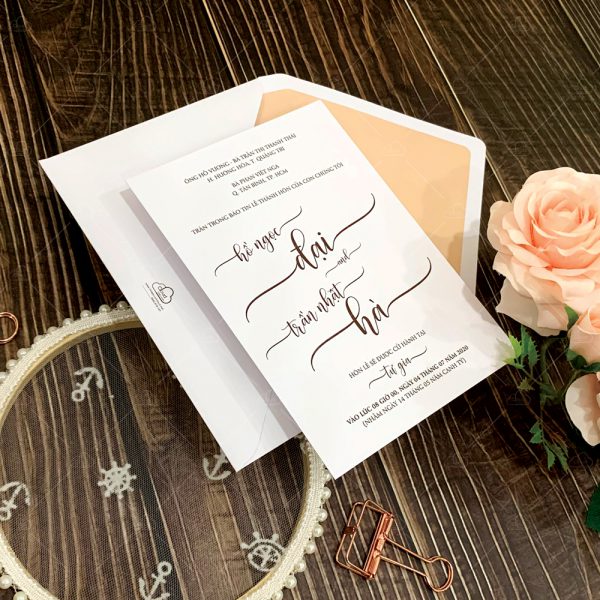 ÔNG HỒ VƯƠNG - BÀ TRẦN THỊ THANH THẠI
H. HƯƠNG HÓA, T. QUẢNG TRỊ
BÀ PHAN VIỆT NGA
Q. TÂN BÌNH, TP. HCM
TRÂN TRỌNG BÁO TIN LỄ THÀNH HÔN CỦA CON CHÚNG TÔI
hồ ngọc
đại
and
trần nhất
hà
HÔN LỄ SẼ ĐƯỢC CỬ HÀNH TẠI
tư gia
VÀO LÚC 08 GIỜ 00, NGÀY 04 THÁNG 07 NĂM 2020
(NHẰM NGÀY 14 THÁNG 05 NĂM CANH TÝ)